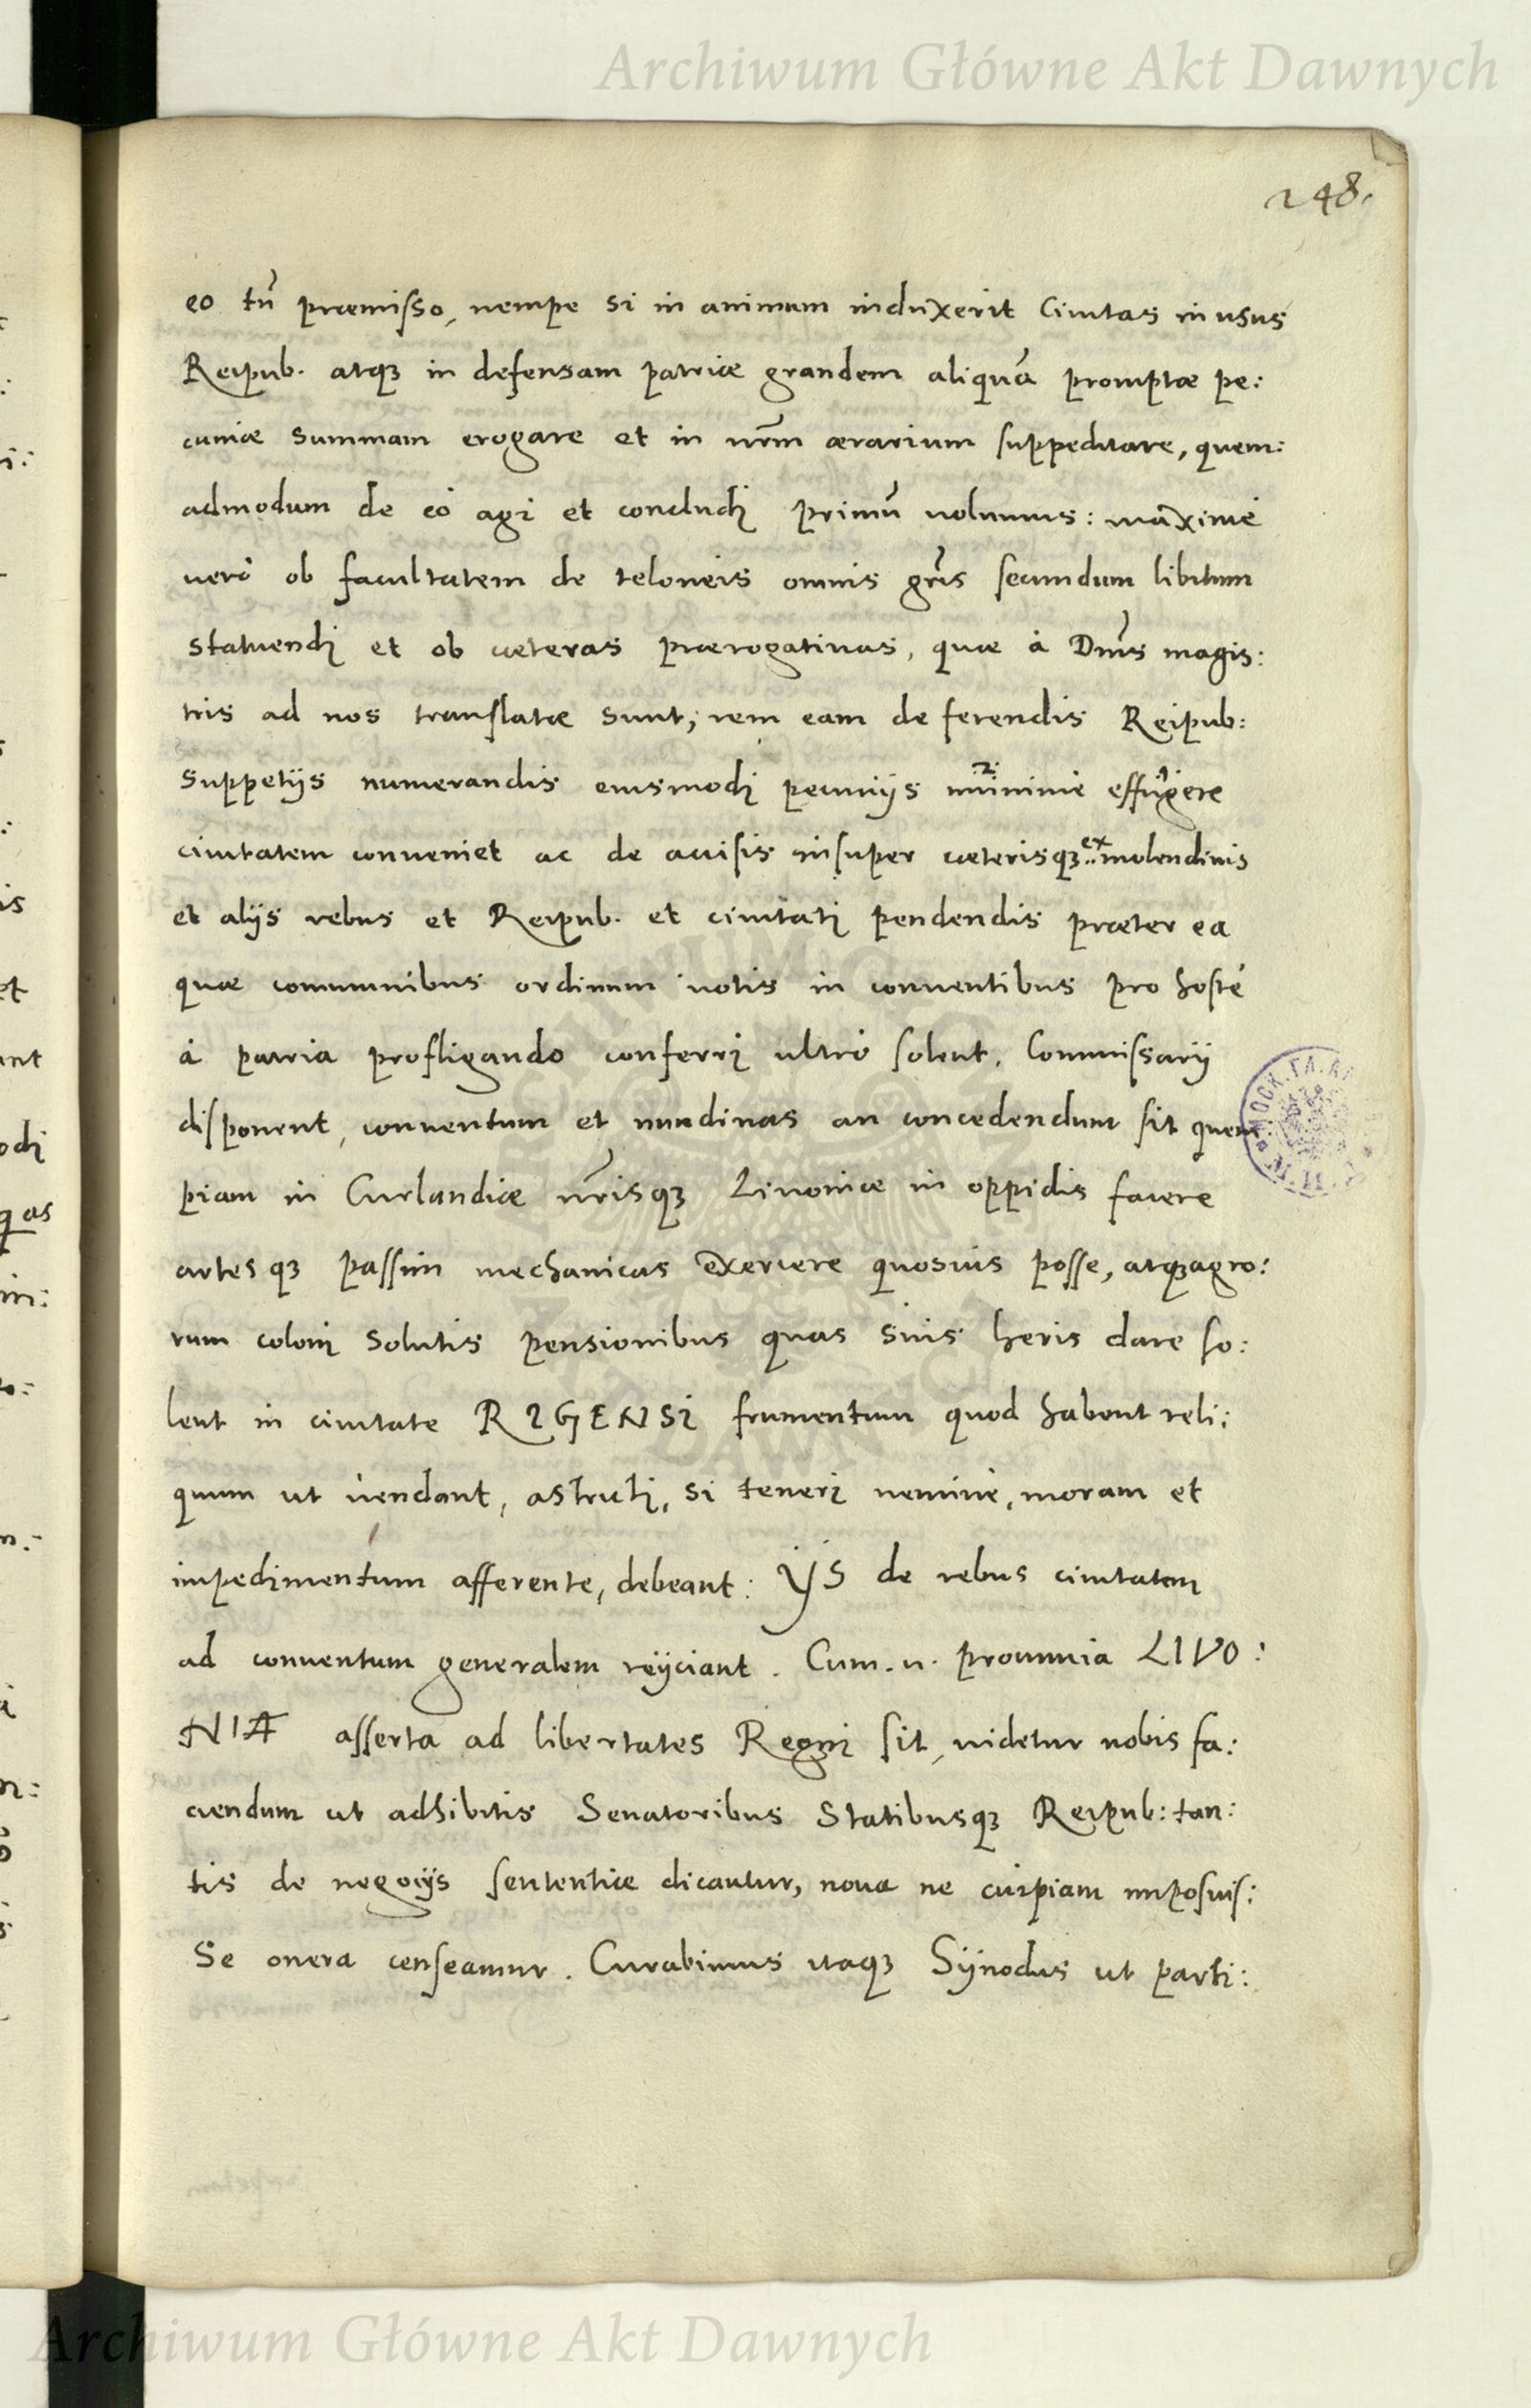 Archiwum Główne Akt Dawnych
248.
eo tñ præmisso, nempe si in animum induxerit Ciuitas in usus
Reipub. atqꝫ in defensam patriæ grandem aliquã promptæ pe:
cuniæ summam erogare et in nr̃m ærarium suppeditare, quem:
admodum de eò agi et concludi primũ uolumus: maximè
uerò ob facultatem de teloneis omnis gr̃is secundum libitum
statuendi et ob cæteras prærogatiuas, quæ à Dnı̃s magis:
tris ad nos translatæ sunt; rem eam de ferendis Reipub:
suppetijs numerandis eiusmodi pecunijs minimè effugere
ciuitatem conueniet ac de accisis insuper cæterisqꝫ ex molendinis
et alijs rebus et Reipub. et ciuitati pendendis præter ea
quæ communibus ordinum uotis in conuentibus pro hoste
à patria profligando conferri ultrò solent. Commissarij
disponent, conuentum et nundinas an concedendum sit quem
piam in Curlandiæ nr̃isqꝫ Liuoniæ in oppidis facere
artesqꝫ passim mechanicas exercere quosuis posse, atqꝫ agro:
rum coloni solutis pensionibus quas suis heris dare so:
lent in ciuitate RIGENSI frumentum quod habent reli:
quum ut uendant, astricti, si teneri nemine, moram et
impedimentum afferente, debeant: IJS de rebus ciuitatem
ad conuentum generalem reijciant. Cum.n. prouincia LIVO:
NIA asserta ad libertates Regni sit, uidetur nobis fa:
ciendum ut adhibitis Senatoribus Statibusqꝫ Reipub: tan:
tis de negocijs sententiæ dicantur, noua ne cuipiam imposuis:
se onera censeamur. Curabimus itaqꝫ Sÿnodus ut parti:
Archiwum Główne Akt Dawnych